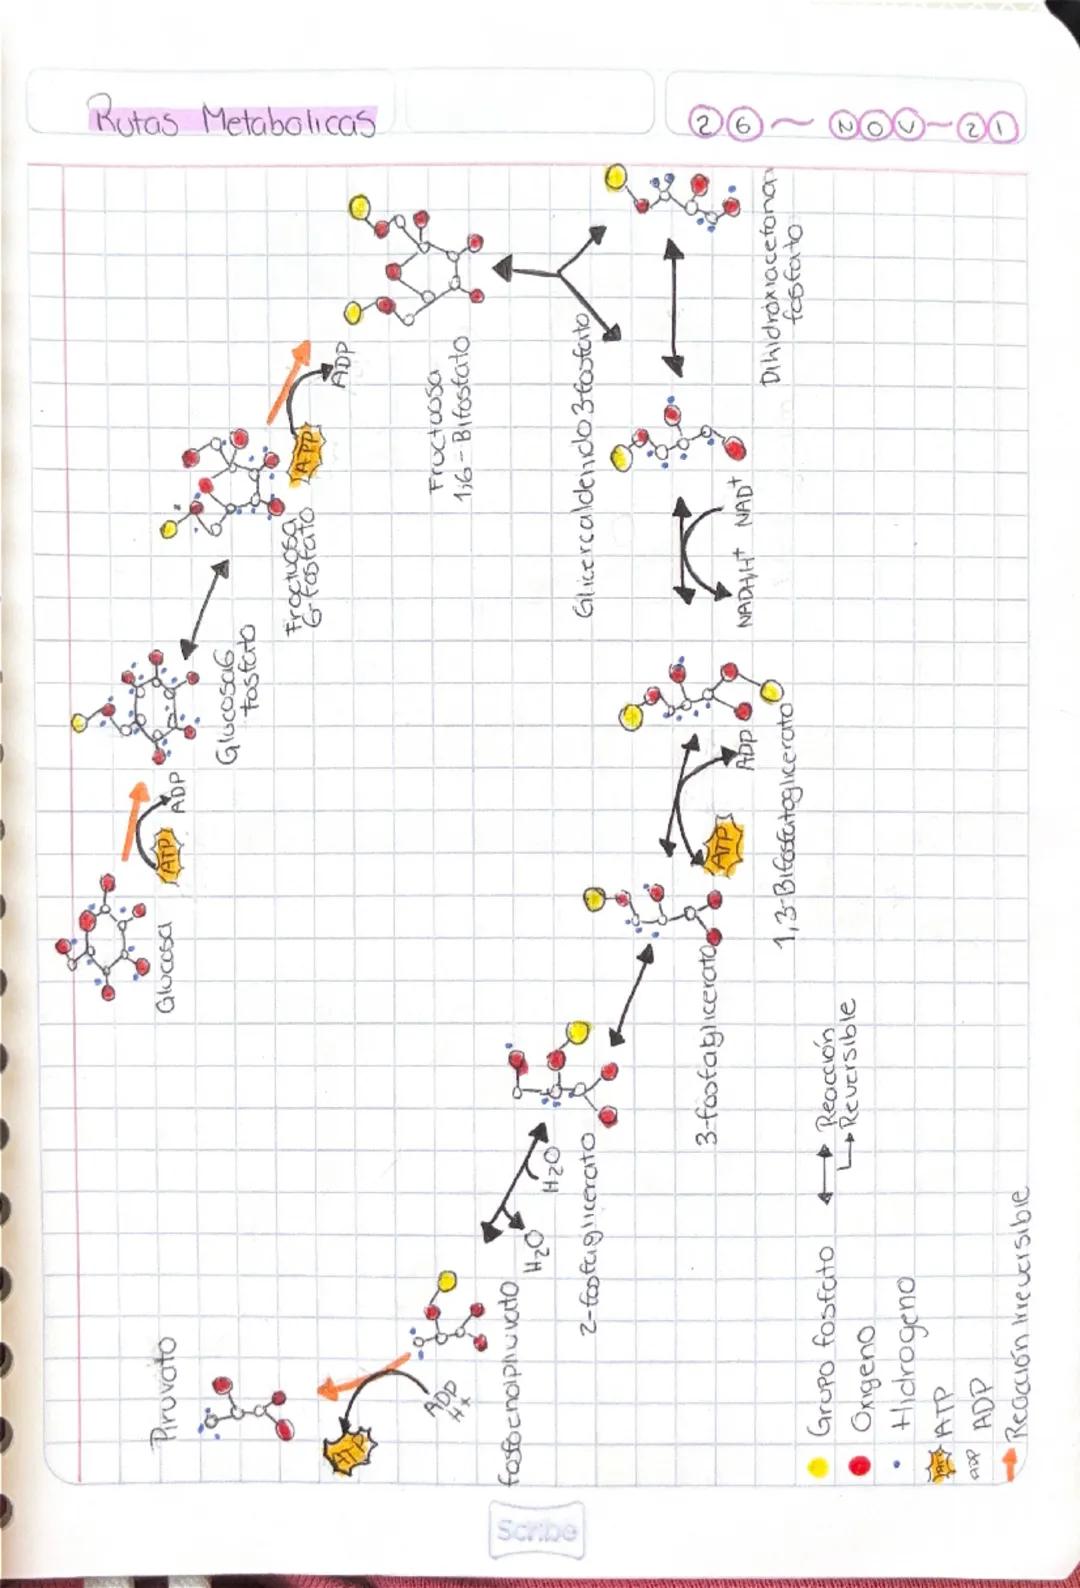 Rutas Metabolicas
26~NOV-21
Glucosa
ATP
ADP
Glucosa6
fosfato
Fructuosa
6-fosfato
ADP
Fructuosa
1,6-Bifosfato
Dihidroxiacetona
fosfato
NAD+
1,3-Bifosfatoglicerato
ADP
ATP
3-fosfaglicerato
2-fosfaglicerato
H2O
H2O
ATP
Piruvato
Grupo fosfato
Oxigeno
Hidrogeno
ATP
ATP
ADP
ADP
Reacción Irreversible
Reacción
Reversible
Scribe